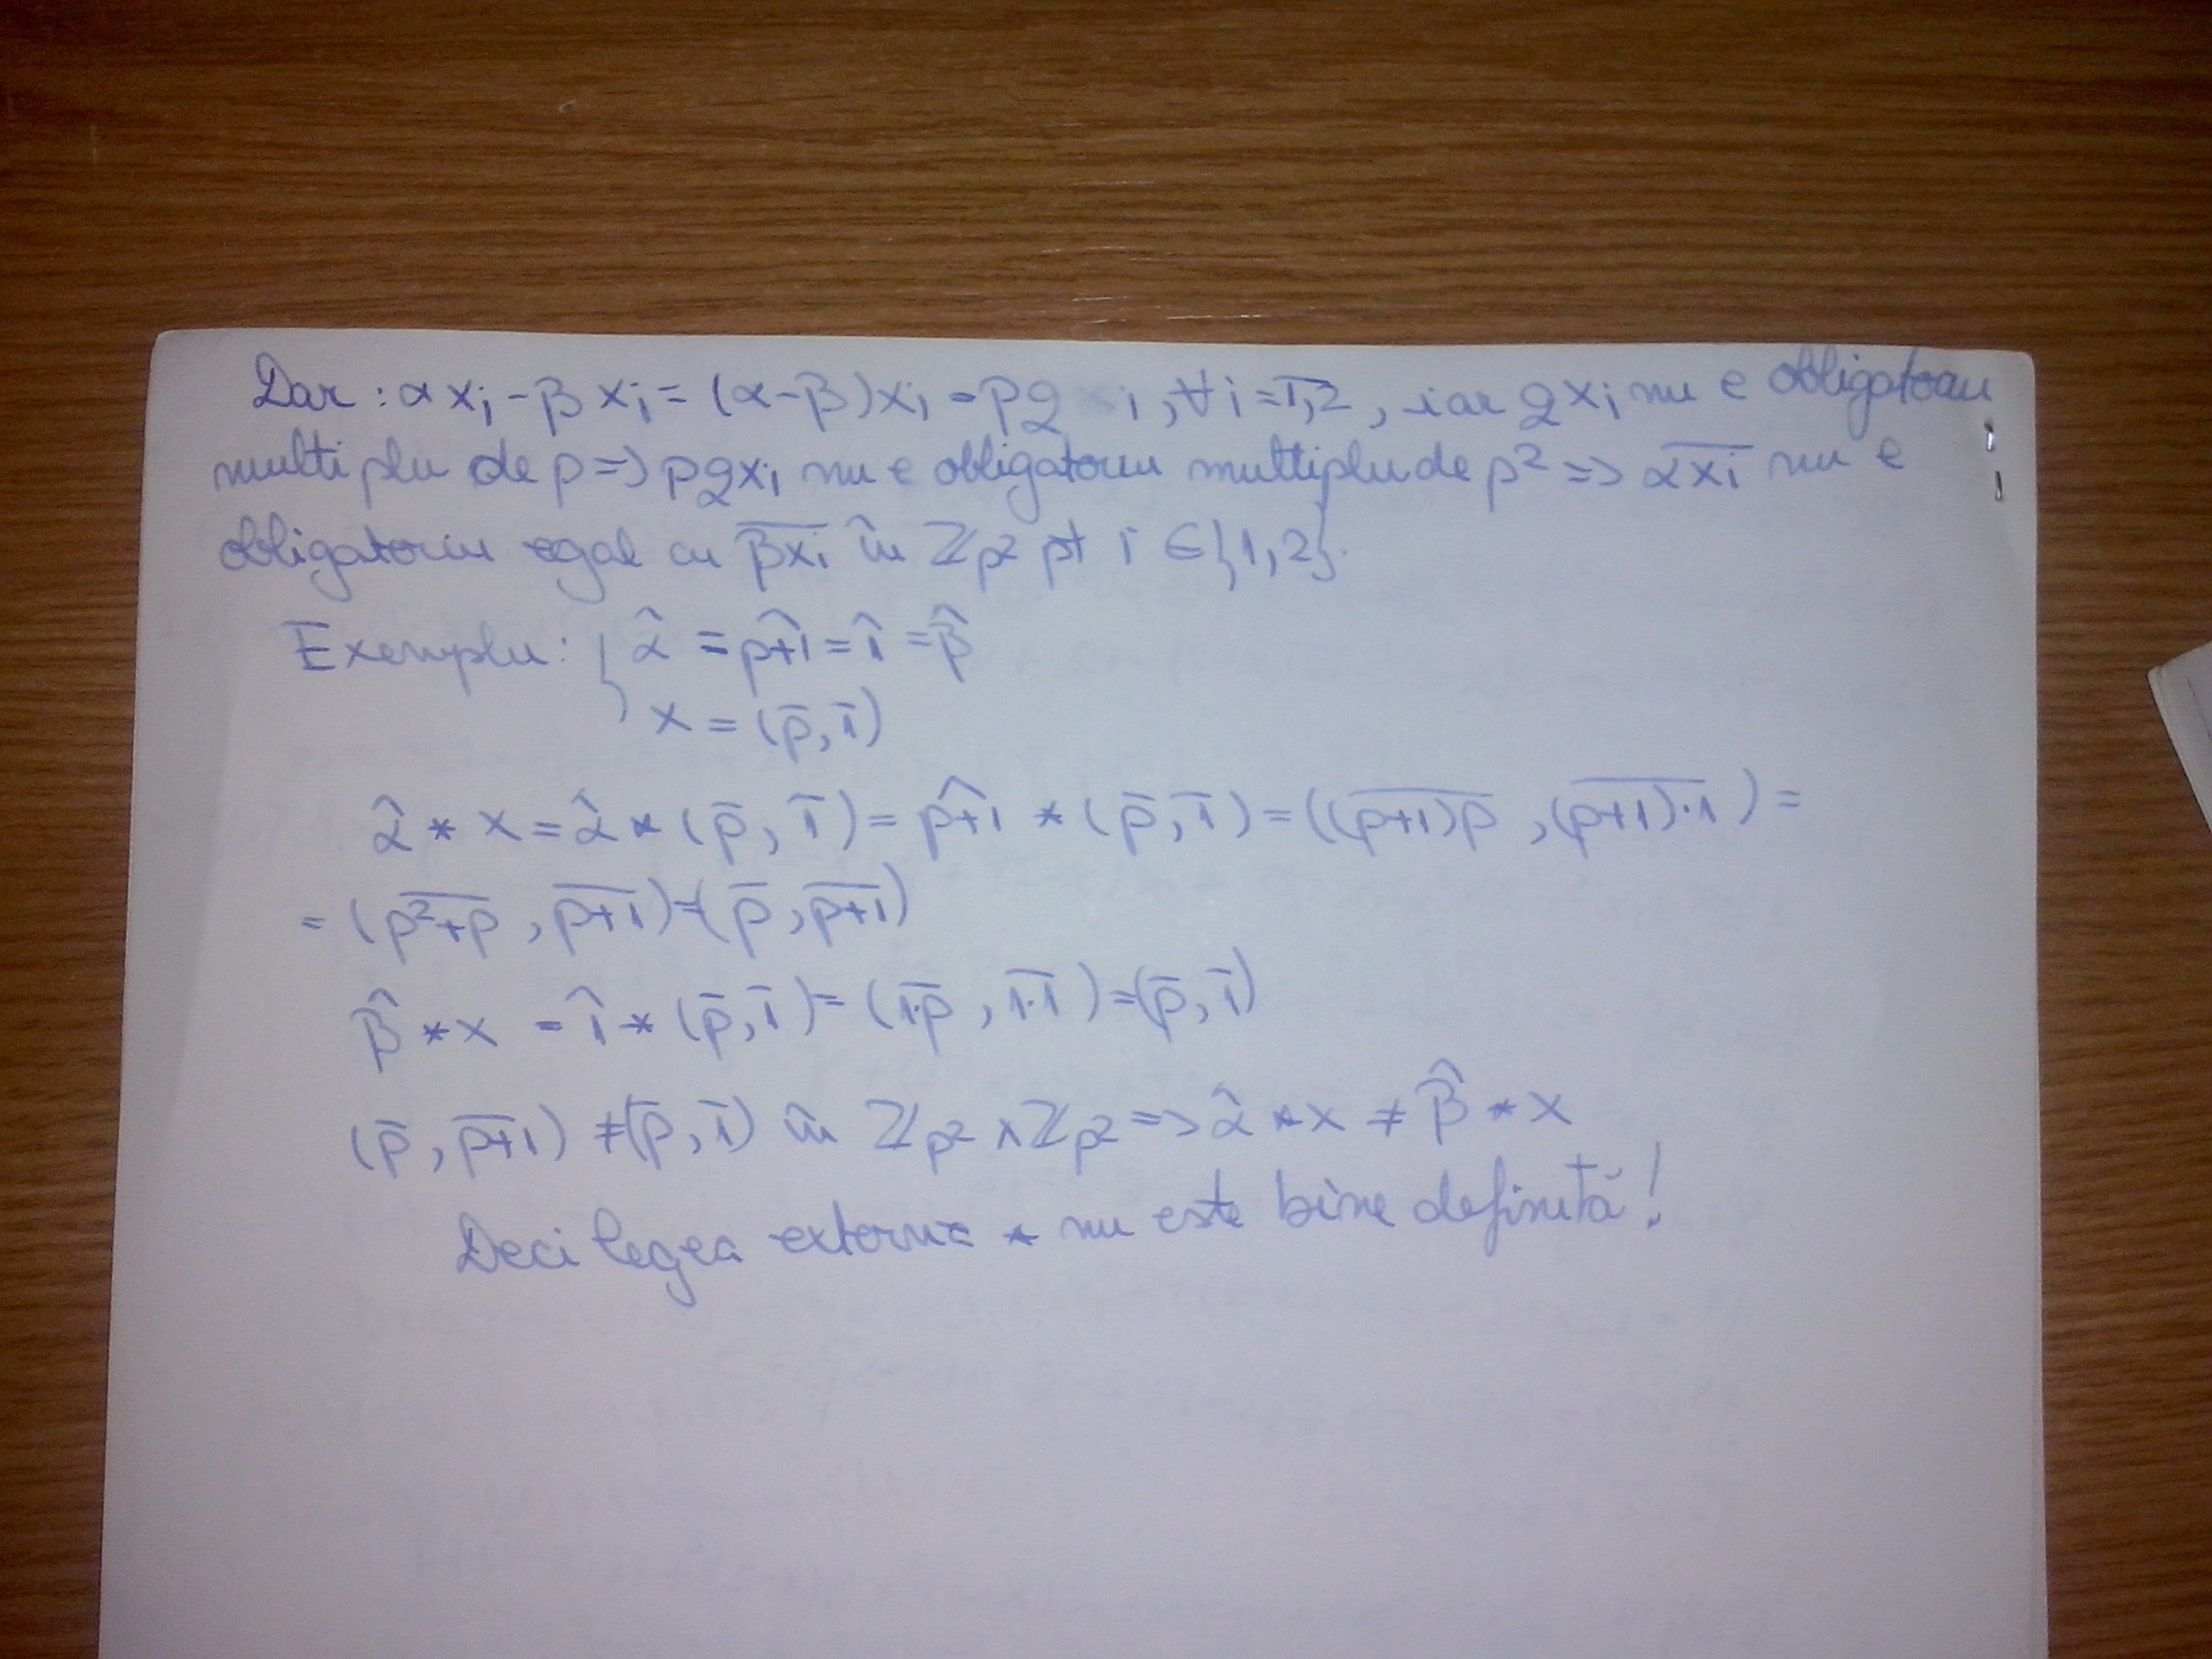 Dar: αxᵢ-βxᵢ=(α-β)xᵢ=pqxᵢ, ∀i=1̅,̅2̅, iar qxᵢ nu e obligatoriu
multiplu de p=>pqxᵢ nu e obligatoriu multiplu de p²=> α̅x̅ᵢ̅ nu e
obligatoriu egal cu β̅x̅ᵢ̅ în ℤp² pt i∈{1,2}.
Exemplu: { α̂ = p+̂1 = 1̂ = β̂
x = (p̄, 1̄)
α̂ * x = α̂ * (p̄, 1̄) = p+̂1 * (p̄, 1̄) = ((̅p̅+̅1̅)̅p̅, (̅p̅+̅1̅)̅·̅1̅) =
= (p̅²̅+̅p̅, p̅+̅1̅) = (p̄, p̅+̅1̅)
β̂ * x = 1̂ * (p̄, 1̄) = (1̅·̅p̅, 1̅·̅1̅) = (p̄, 1̄)
(p̄, p̅+̅1̅) ≠ (p̄, 1̄) în ℤp² x ℤp² => α̂ * x ≠ β̂ * x
Deci legea externă * nu este bine definită!